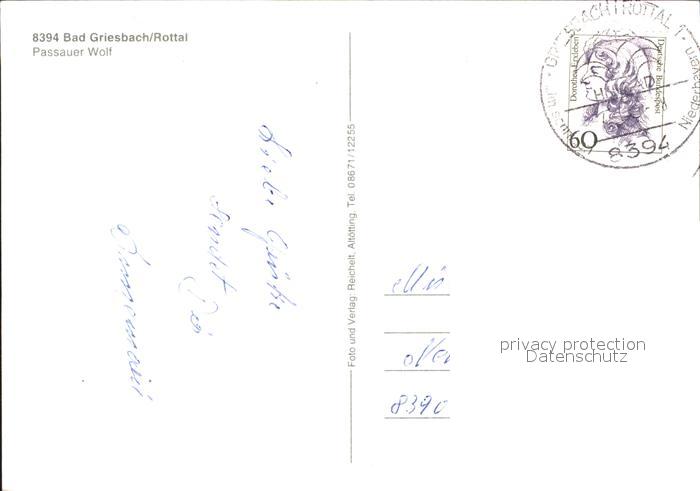 8394 Bad Griesbach/Rottal
Passauer Wolf
Liebe Grüße
sendet Dir
Foto und Verlag: Reichelt, Altötting, Tel. 08671/12255
Dorothea Erxleben
Deutsche Bundespost
60
GRIESBACH I ROTTAL 1
8394
Niederbayern
8390
privacy protection
Datenschutz